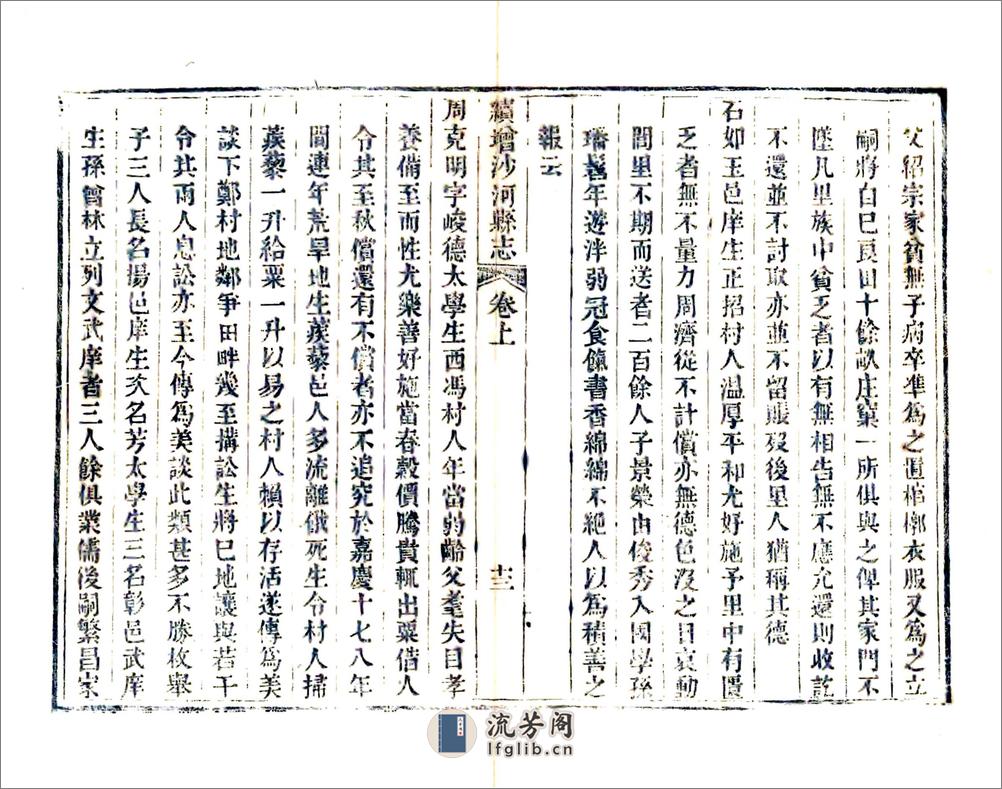 父紹宗家貧無子病卒準為之置棺槨衣服又為之立
嗣將自己良田十餘畝庄窠一所俱與之俾其家門不
墜凡里族中貧乏者以有無相告無不應允還則收訖
不還並不討取亦並不留賬歿後里人猶稱其德
石如玉邑庠生正招村人温厚平和尤好施予里中有匱
乏者無不量力周濟從不計償亦無德色沒之日哀動
閭里不期而送者二百餘人子景榮由俊秀入國學孫
璠髫年遊泮弱冠食餼書香綿綿不絕人以為積善之
報云
續增沙河縣志
卷上
十三
周克明字峻德太學生西馮村人年當弱齡父耄失目孝
養備至而性尤樂善好施當春穀價騰貴輒出粟借人
令其至秋償還有不償者亦不追究於嘉慶十七八年
間連年荒旱地生蒺藜邑人多流離餓死生令村人掃
蒺藜一升給粟一升以易之村人賴以存活遂傳為美
談下鄭村地鄰爭田畔幾至搆訟生將己地讓與若干
令其兩人息訟亦至今傳為美談此類甚多不勝枚舉
子三人長名揚邑庠生次名芳太學生三名彰邑武庠
生孫曾林立列文武庠者三人餘俱業儒後嗣繁昌家
流芳阁
lfglib.cn